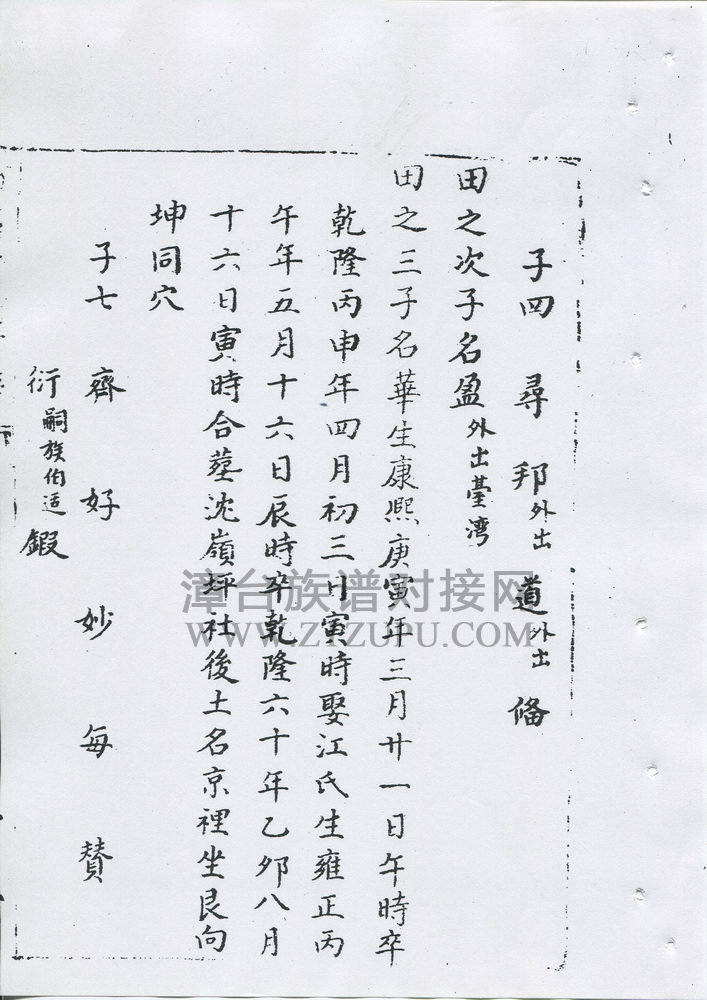 子四 尋 邦外出 道外出 偹
田之次子名盈外出臺湾
田之三子名華生康熙庚寅年三月廿一日午時卒
乾隆丙申年四月初三日寅時娶江氏生雍正丙
午年五月十六日辰時卒乾隆六十年乙夘八月
十六日寅時合墓沈嶺坪社後土名京裡坐艮向
坤同穴
子七 齊 好 妙 每 赞
衍嗣族伯适 鍜
漳台族谱对接网
WWW.ZTZUPU.COM